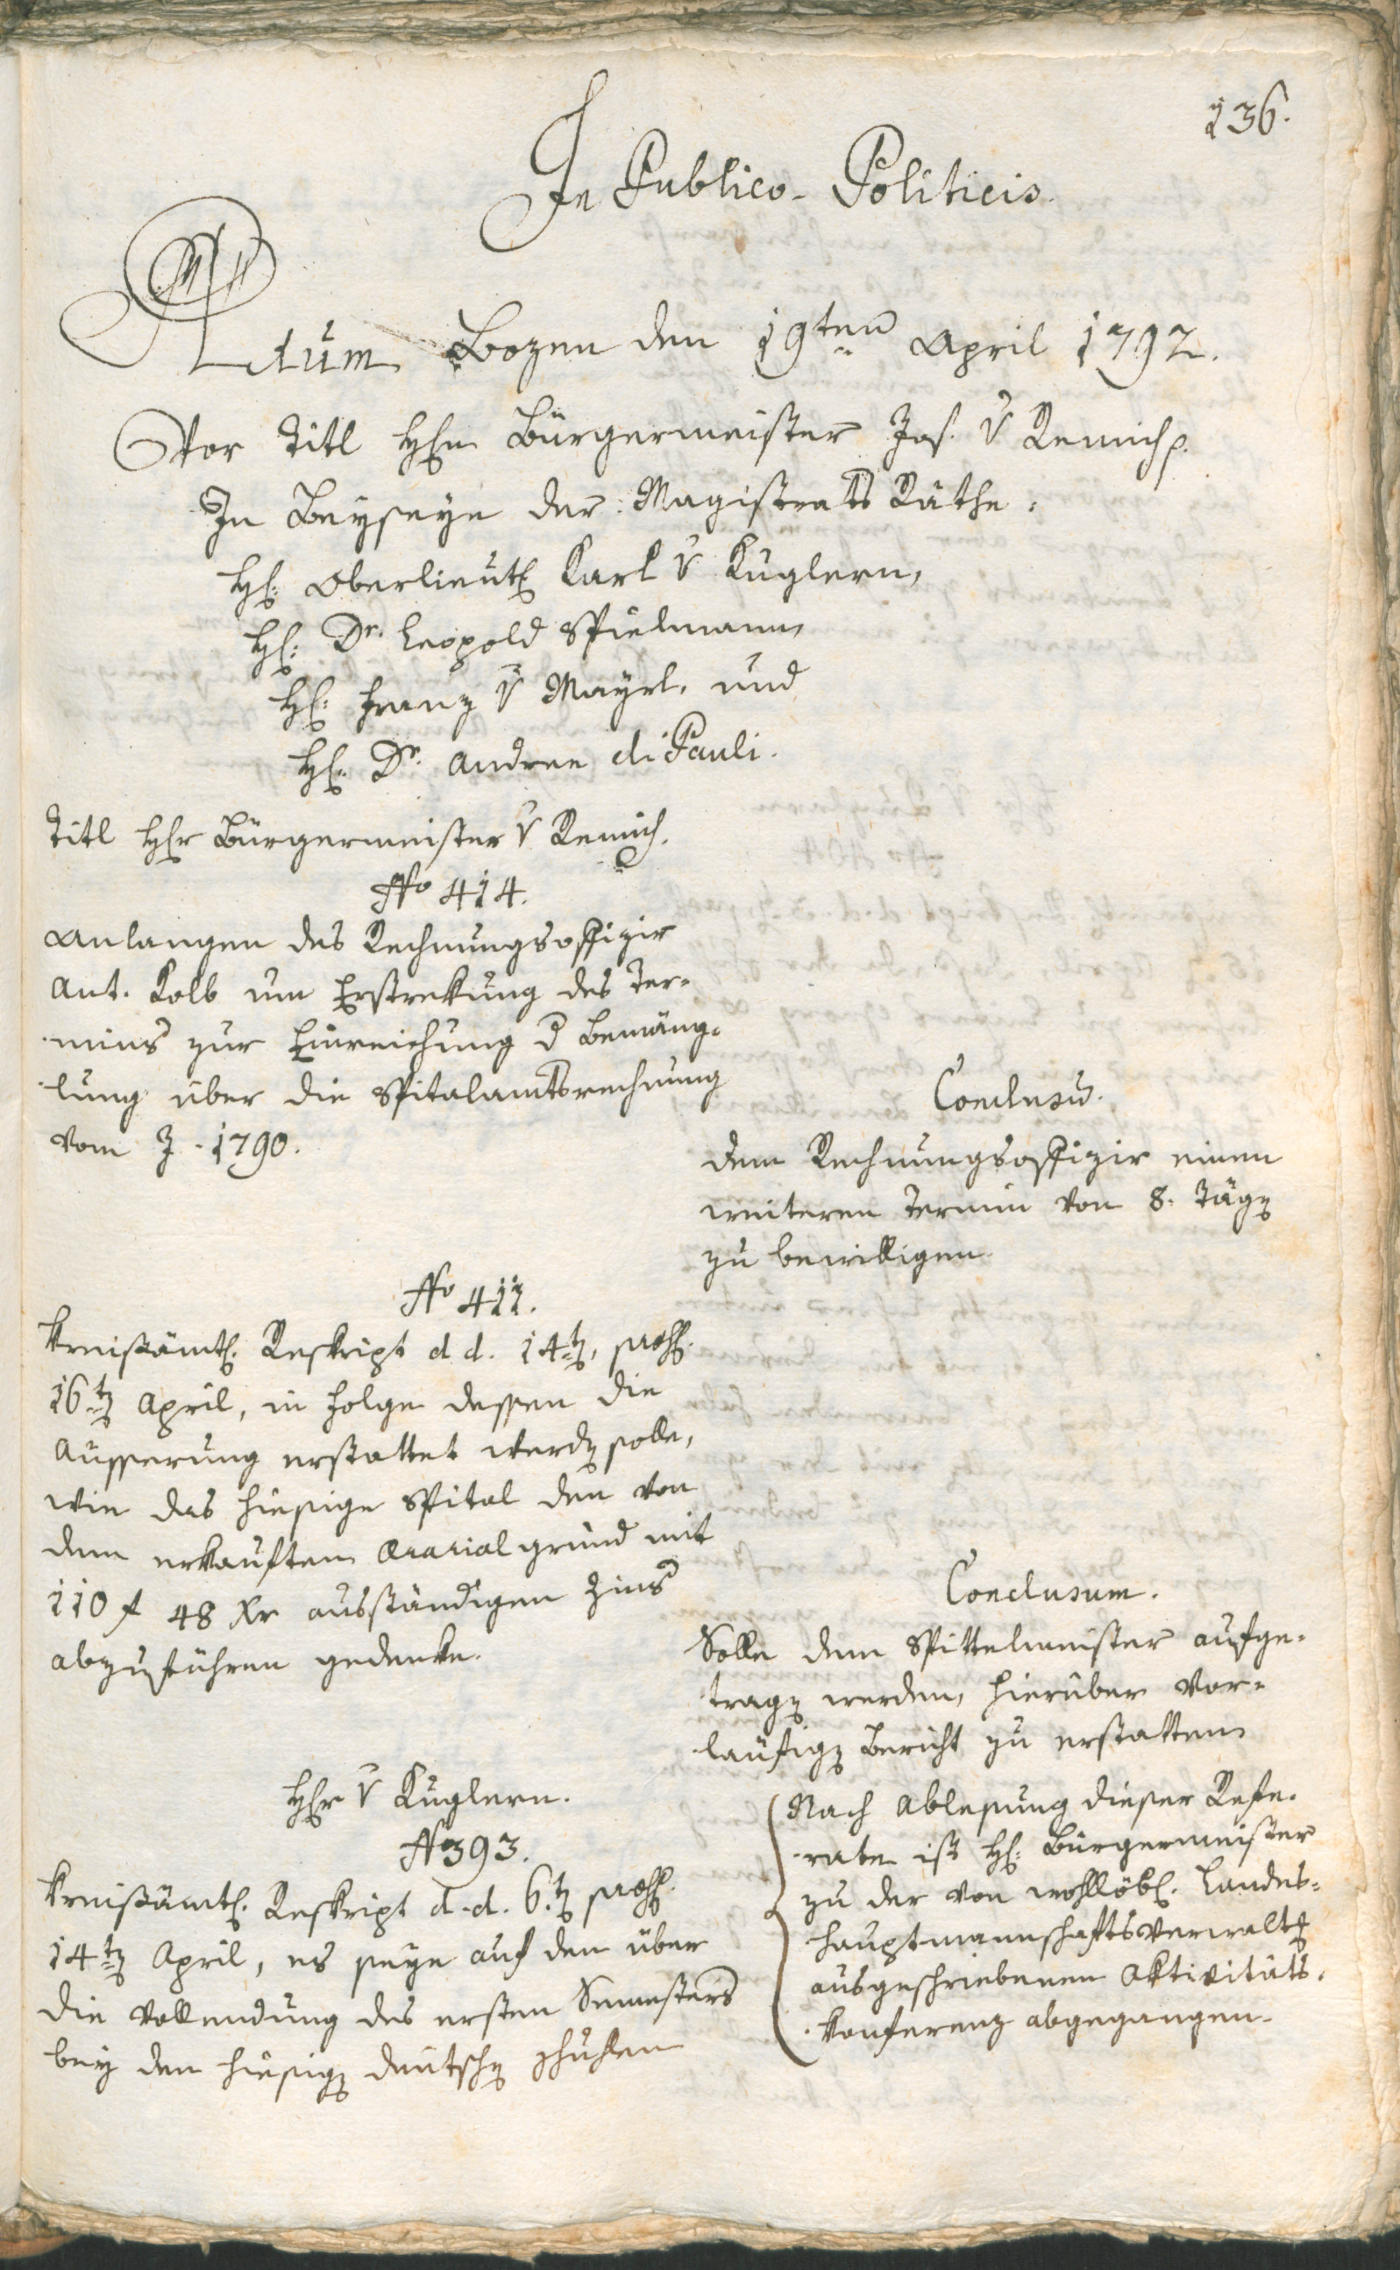 136.
In Publico-Politicis.
Actum Bozen den 19ten April 1792.
Vor Titl Hℓn Bürgermeister Jos. v Remich p.
In Beyseyn der Magistrats Räthe:
Hℓ: Oberlieutℓ Karl v Kuglern,
Hℓ: Dr. Leopold Spielmann,
Hℓ: Franz v Mayrl, und
Hℓ: Dr. Andree di Pauli.
Titl Hℓr Bürgermeister v Remich.
No 414.
Anlangen des Rechnungsoffizir
Ant. Kolb um Erstrekung des Ter-
mins zur Einreichung d Bemäng-
lung über die Spitalamtsrechnung
vom J. 1790.
Conclusū.
dem Rechnungsoffizir einen
weiteren Termin von 8. Tägen
zu bewilligen.
No 411.
Kreisämtℓ. Reskript d. d. 14ten,
16ten April, in Folge dessen die
Aüsserung erstattet werden solle,
wie das hiesige Spital den von
dem erkauften Ararialgrund mit
110 f 48 Xr ausständigen Zins
abzuführen gedenke.
Conclusum.
Solle dem Spittelmeister aufge-
tragen werden, hierüber vor-
läufigen Bericht zu erstatten
Hℓr v Kuglern.
No 393.
Kreisämtℓ. Reskript d. d. 6.ten
14ten April, es seye auf den über
die Vollendung des ersten Semesters
bey den hiesigen deutschen Schuhlen
Nach Ablesung dieser Refe-
rate ist Hℓ: Bürgermeister
zu der von wohllöbℓ. Landes-
hauptmannschaftsverwaltg
ausgeschriebenen Aktivitäts-
konferenz abgegangen.